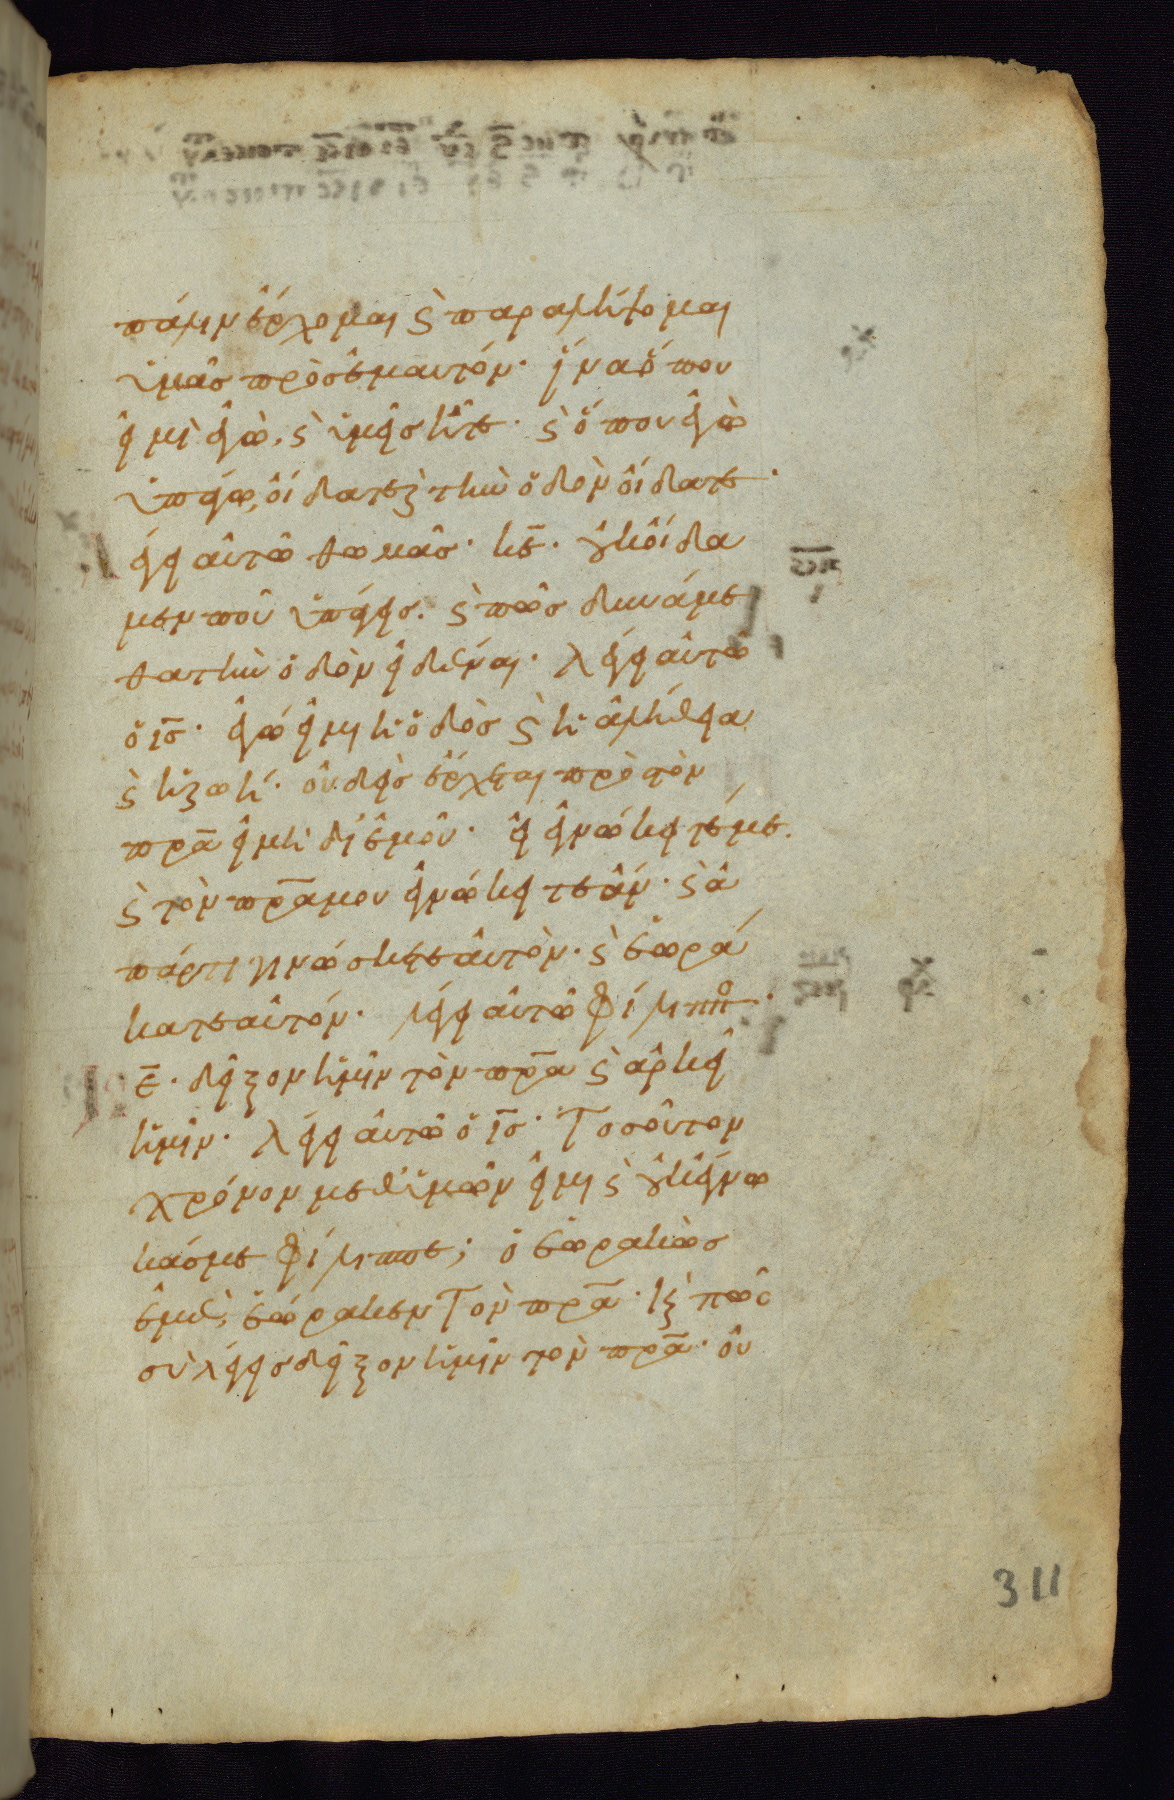 πάλιν ἔρχομαι ϗ παραλήψομαι
ὑμᾶσ πρὸσ ἐμαυτόν· ἵνα ὅπου
εἰμὶ ἐγὼ, ϗ ὑμεῖσ ἦτε· ϗ ὅπου ἐγὼ
ὑπάγω, οἴδατε ϗ τὴν ὁδὸν οἴδατε·
λέγει αὐτῶ θωμᾶσ· κε̄· οὐκ οἴδα
μεν ποῦ ὑπάγεισ· ϗ πῶσ δυνάμε
θα τὴν ὁδὸν εἰδέναι· λέγει αὐτῶ
ὁ ις̄· ἐγώ εἰμι ἡ ὁδὸσ ϗ ἡ ἀλήθεια
ϗ ἡ ζωή· οὐδεὶσ ἔρχεται πρὸς τὸν
πρ̄α εἰ μὴ δι' ἐμοῦ· εἰ ἐγνώκειτέ με.
ϗ τὸν πρ̄α μου ἐγνώκειτε ἄν· ϗ ἀ
πάρτι γινώσκετε αὐτὸν· ϗ ἑωρά
κατε αὐτόν· λέγει αὐτῶ φίλιππος·
κ̄ε· δεῖξον ἡμῖν τὸν πρ̄α ϗ ἀρκεῖ
ἡμῖν· λέγει αὐτῶ ὁ ις̄· τοσοῦτον
χρόνον μεθ' ὑμῶν εἰμι ϗ οὐκ ἔγνω
κάσ με φίλιππε; ὁ ἑωρακὼσ
ἐμὲ, ἑώρακεν τὸν πρ̄α· ϗ πῶσ
σὺ λέγεισ δεῖξον ἡμῖν τὸν πρ̄α· οὐ
311